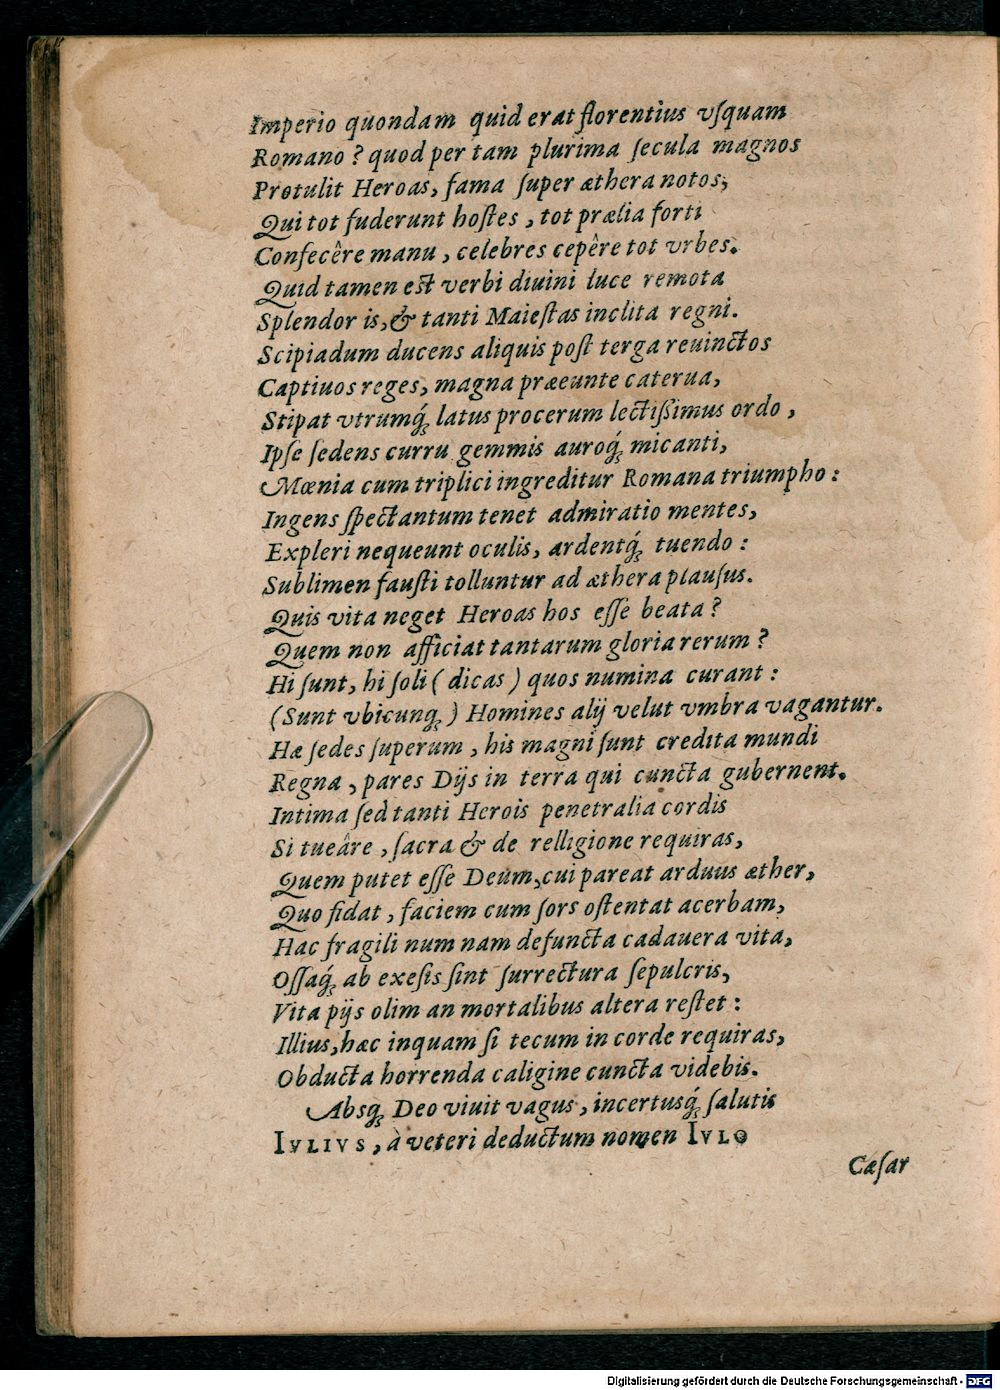 Imperio quondam quid erat florentius vſquam
Romano? quod per tam plurima ſecula magnos
Protulit Heroas, fama ſuper æthera notos;
Qui tot fuderunt hoſtes, tot prælia forti
Confecêre manu, celebres cepêre tot vrbes.
Quid tamen eſt verbi diuini luce remota
Splendor is, & tanti Maieſtas inclita regni.
Scipiadum ducens aliquis poſt terga reuinctos
Captiuos reges, magna præeunte caterua,
Stipat vtrumq́ue latus procerum lectiſſimus ordo,
Ipſe ſedens curru gemmis auroq́ue micanti,
Mœnia cum triplici ingreditur Romana triumpho:
Ingens ſpectantum tenet admiratio mentes,
Expleri nequeunt oculis, ardentq́ue tuendo:
Sublimen fauſti tolluntur ad æthera plauſus.
Quis vita neget Heroas hos eſſe beata?
Quem non afficiat tantarum gloria rerum?
Hi ſunt, hi ſoli (dicas) quos numina curant:
(Sunt vbicunq;) Homines alij velut vmbra vagantur.
Hæ ſedes ſuperum, his magni ſunt credita mundi
Regna, pares Dijs in terra qui cuncta gubernent.
Intima ſed tanti Herois penetralia cordis
Si tueâre, ſacra & de relligione requiras,
Quem putet eſſe Deum, cui pareat arduus æther,
Quo fidat, faciem cum ſors oſtentat acerbam,
Hac fragili num nam defuncta cadauera vita,
Oſſaq́ue ab exeſis ſint ſurrectura ſepulcris,
Vita pijs olim an mortalibus altera reſtet:
Illius, hæc inquam ſi tecum in corde requiras,
Obducta horrenda caligine cuncta videbis.
Absq; Deo viuit vagus, incertusq́ue ſalutis
IVLIVS, à veteri deductum nomen IVLO
Cæſar
Digitalisierung gefördert durch die Deutsche Forschungsgemeinschaft - DFG